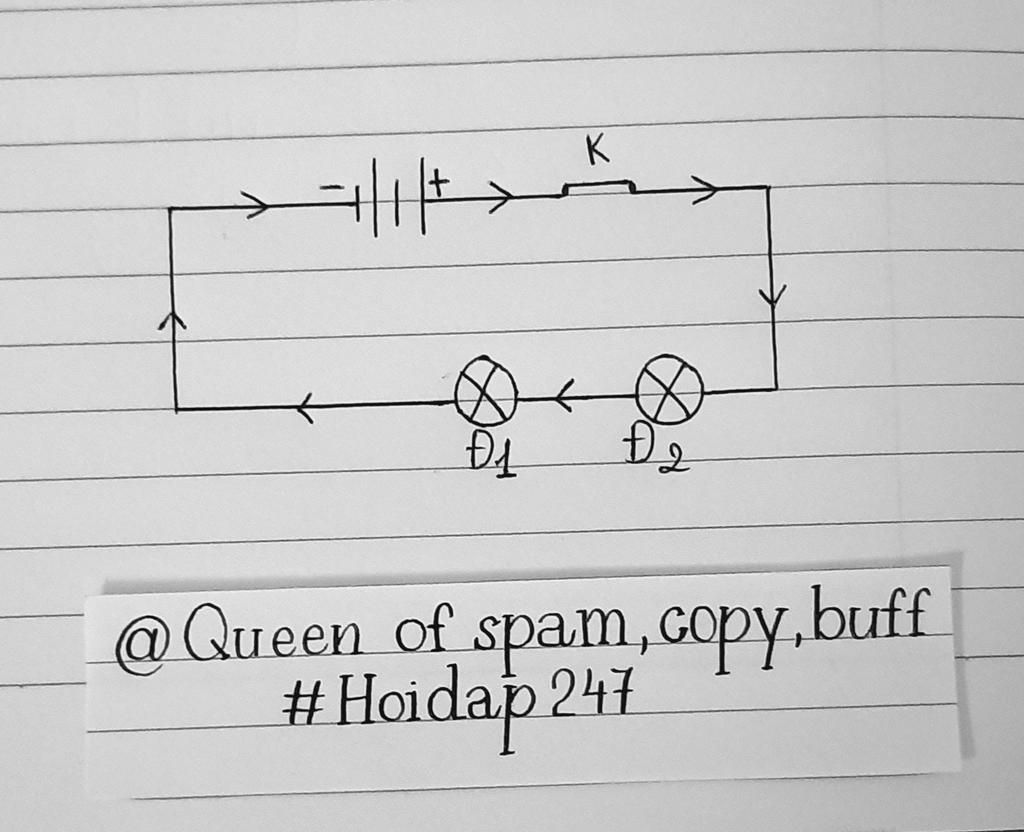 K
- +
Đ1 Đ2
@Queen of spam, copy, buff
#Hoidap247